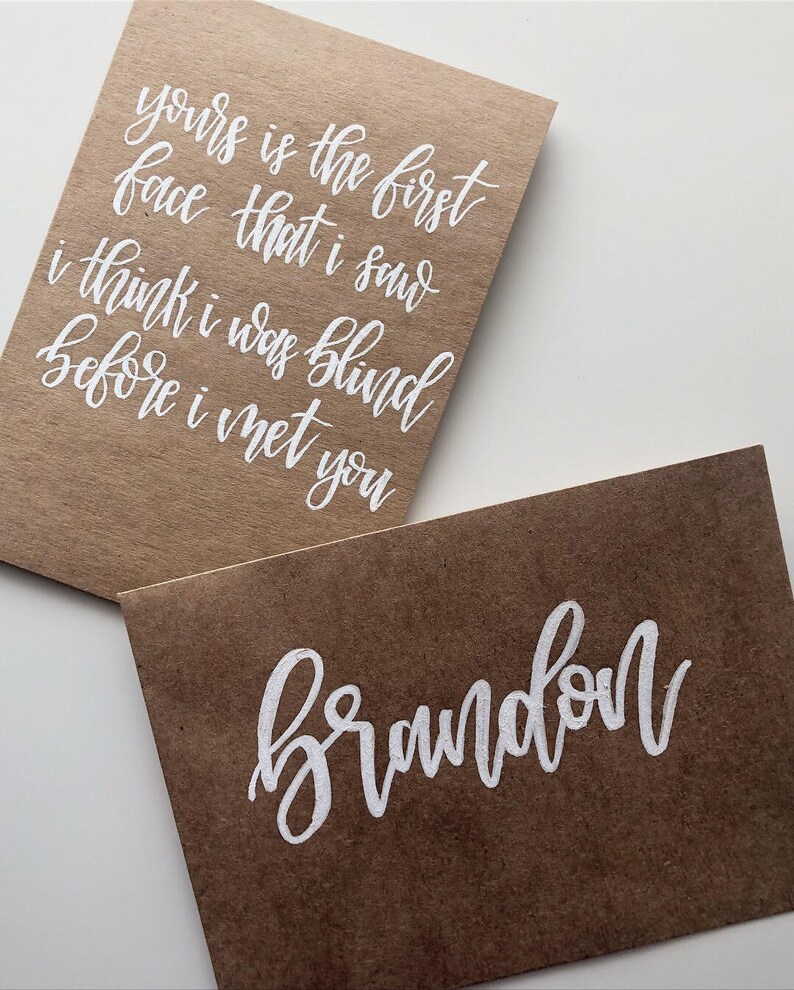 yours is the first
face that i saw
i think i was blind
before i met you
brandon